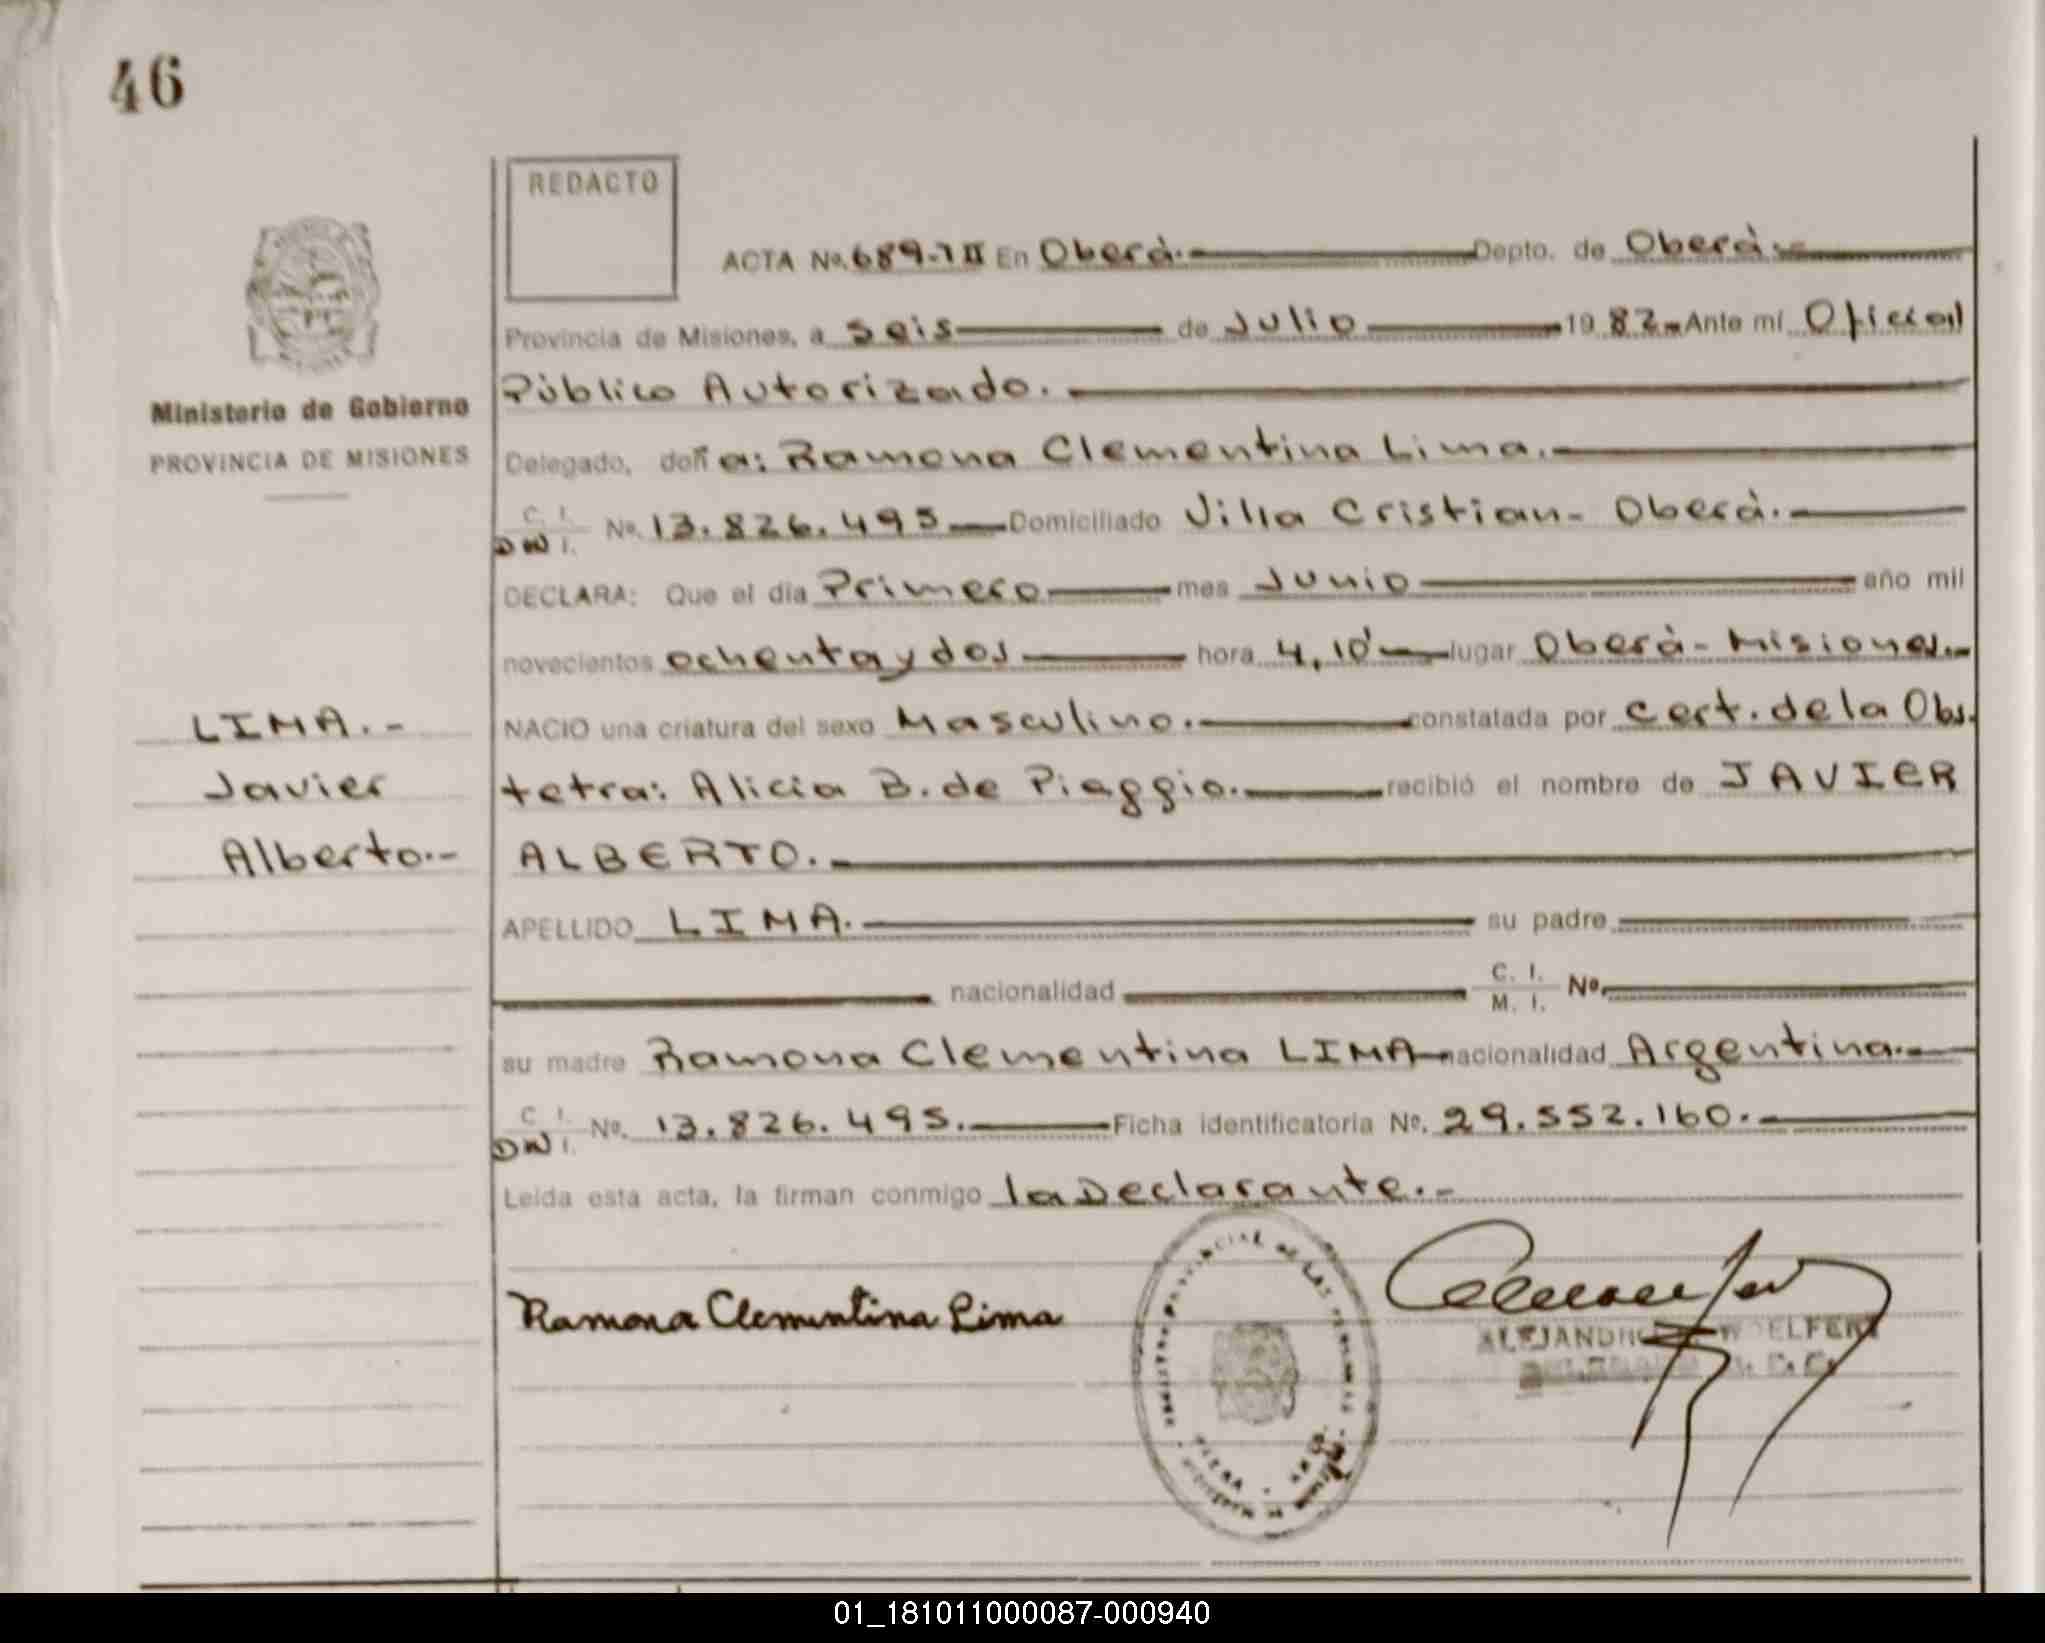 46
REDACTO
ACTA No. 689-III En Oberá.- Depto. de Oberá.-
Provincia de Misiones, a seis de Julio 1982.- Ante mí Oficial
Público Autorizado.
Ministerio de Gobierno
PROVINCIA DE MISIONES
Delegado, doña: Ramona Clementina Lima.
C. I.
DNI. No. 13.826.495 Domiciliado Villa Cristian - Oberá.
DECLARA: Que el día Primero mes Junio año mil
novecientos ochenta y dos hora 4,10' lugar Oberá - Misiones.-
LIMA.-
Javier
Alberto.-
NACIO una criatura del sexo Masculino. constatada por Cert. de la Obs.
tetra: Alicia B. de Piaggio. recibió el nombre de JAVIER
ALBERTO.
APELLIDO LIMA. su padre
nacionalidad C. I. M. I. No.
su madre Ramona Clementina LIMA nacionalidad Argentina.-
C. I.
DNI. No. 13.826.495. Ficha identificatoria No. 29.552.160.
Leída esta acta, la firman conmigo la Declarante.-
Ramona Clementina Lima
01_181011000087-000940